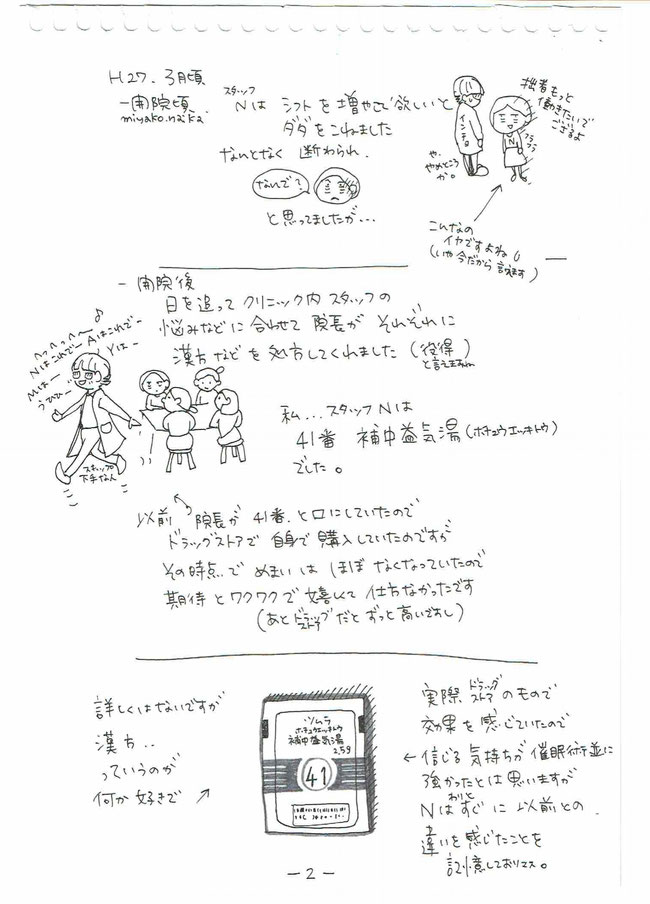 H27. 3月頃
一開院頃
miyako.naika.
スタッフ
Nは シフトを増やして欲しいと
ダダをこねました
なんとなく 断わられ.
なんで?
と思ってましたが...
インチョ
や、
やめところ
か。
拙者もっと
働きたいで
ござるよ
N
フラ
フラ
こんなの
イヤですよね
(いや今だから言えます)
一 開院後
日を追って クリニック内 スタッフの
悩みなどに合わせて 院長が それぞれに
漢方などを処方してくれました (役得)
と言えますね
へっへっへ〜♪
Nはこれでー Aはこれでー
Mはー Yはー
うひひー
スキップ
下手なん
私... スタッフNは
41番 補中益気湯(ホチュウエッキトウ)
でした。
以前 院長が 41番.と口にしていたので
ドラッグストアで 自身で購入していたのですが
その時点で めまいは ほぼ なくなっていたので
期待とワクワクで 嬉しくて 仕方なかったです
(あと ドラッグストア だと ずっと高いですし)
詳しくはないですが
漢方..
っていうのが
何か好きで
ツムラ
ホチュウエッキトウ
補中益気湯
2.5g
41
実際 ドラッグストア のもので
効果を感じていたので
← 信じる気持ちが催眠術並に
強かったとは思いますが
Nは わりと すぐに 以前との
違いを感じたことを
記憶しておりマス。
- 2 -